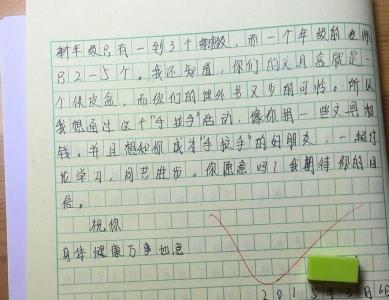 年级只有一到3个班级，而一个年级的老师
只2-5个。我还知道，你们的文具盒就是一
个铁皮盒，而你们的课外书又少的可怜。所以
我想通过这个"手拉手"活动，像你捐一些文具和
钱。并且想和你成为"手拉手"的好朋友，一起讨
论学习，同共进步。你愿意吗？我期待你的回
信。
祝你
身体健康万事如意
2015年3月6日